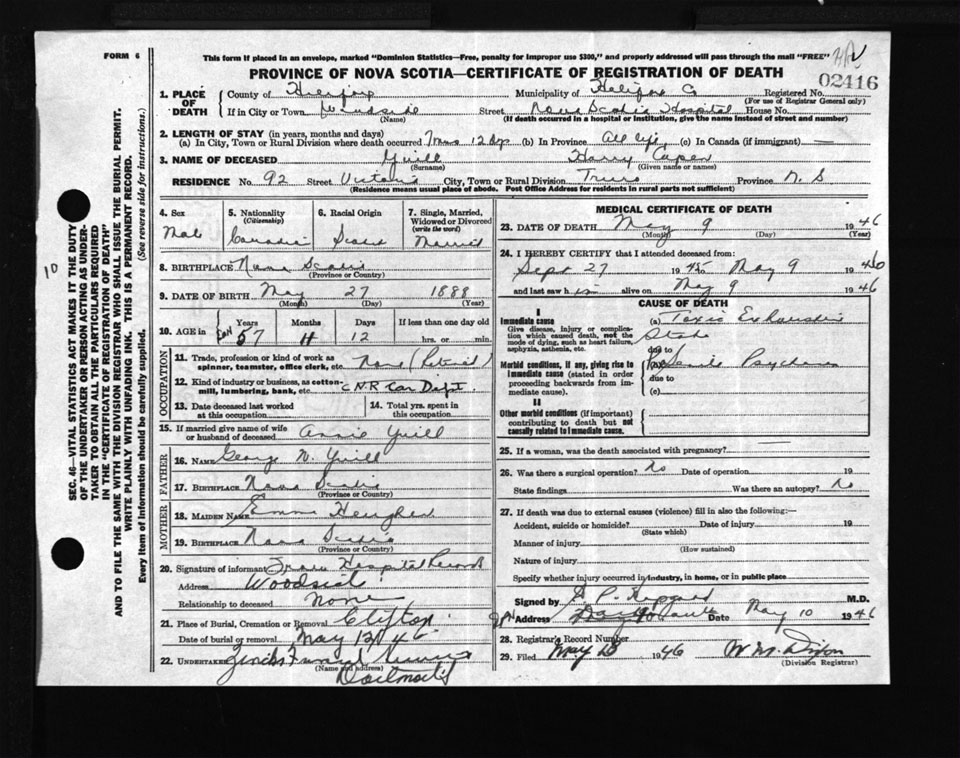 FORM 6
This form if placed in an envelope, marked "Dominion Statistics—Free, penalty for improper use $300," and properly addressed will pass through the mail "FREE"
PROVINCE OF NOVA SCOTIA—CERTIFICATE OF REGISTRATION OF DEATH
02416
1. PLACE OF DEATH
County of Halifax Municipality of Halifax Co Registered No.
(For use of Registrar General only)
If in City or Town Woodside Street Nova Scotia Hospital House No.
(Name) (If death occurred in a hospital or institution, give the name instead of street and number)
2. LENGTH OF STAY (in years, months and days)
(a) In City, Town or Rural Division where death occurred 7 mos 12 dys (b) In Province All life (c) In Canada (if immigrant) —
3. NAME OF DECEASED Yuill Harry
(Surname) (Given name or names)
RESIDENCE No. 92 Street Victoria City, Town or Rural Division Truro Province N. S
(Residence means usual place of abode. Post Office Address for residents in rural parts not sufficient)
4. Sex
Male
5. Nationality
(Citizenship)
Canadian
6. Racial Origin
7. Single, Married, Widowed or Divorced
(write the word)
Married
8. BIRTHPLACE Nova Scotia
(Province or Country)
9. DATE OF BIRTH May 27 1888
(Month) (Day) (Year)
10. AGE in
Years Months Days If less than one day old
57 11 12 hrs. or min.
OCCUPATION
11. Trade, profession or kind of work as spinner, teamster, office clerk, etc. None (Retired)
12. Kind of industry or business, as cotton-mill, lumbering, bank, etc. C.N.R Car Dept.
13. Date deceased last worked at this occupation
14. Total yrs. spent in this occupation
15. If married give name of wife or husband of deceased Annie Yuill
FATHER
16. Name George W. Yuill
17. Birthplace Nova Scotia
(Province or Country)
MOTHER
18. Maiden Name Emma
19. Birthplace Nova Scotia
(Province or Country)
20. Signature of informant Hospital Records
Address Woodside
Relationship to deceased None
21. Place of Burial, Cremation or Removal Clifton
Date of burial or removal May 12 46
22. UNDERTAKER Funeral
(Name and address)
Dartmouth
MEDICAL CERTIFICATE OF DEATH
23. DATE OF DEATH May 9 1946
(Month) (Day) (Year)
24. I HEREBY CERTIFY that I attended deceased from:
Sept 27 1945 to May 9 1946
and last saw him alive on May 9 1946
CAUSE OF DEATH
I
Immediate cause
Give disease, injury or complication which caused death, not the mode of dying, such as heart failure, asphyxia, asthenia, etc.
(a) Toxic Exhaustion
State
due to
Morbid conditions, if any, giving rise to immediate cause (stated in order proceeding backwards from immediate cause).
(b) Senile Psychosis
due to
(c)
II
Other morbid conditions (if important) contributing to death but not causally related to immediate cause.
25. If a woman, was the death associated with pregnancy? —
26. Was there a surgical operation? No Date of operation 19
State findings Was there an autopsy? No
27. If death was due to external causes (violence) fill in also the following:—
Accident, suicide or homicide? Date of injury 19
(State which)
Manner of injury
(How sustained)
Nature of injury
Specify whether injury occurred in industry, in home, or in public place
Signed by M.D.
Address Dartmouth Date May 10 1946
28. Registrar's Record Number
29. Filed May 1946 W M. Dixon
(Division Registrar)
SEC. 46—VITAL STATISTICS ACT MAKES IT THE DUTY OF THE UNDERTAKER OR PERSON ACTING AS UNDERTAKER TO OBTAIN ALL THE PARTICULARS REQUIRED IN THE "CERTIFICATE OF REGISTRATION OF DEATH"
AND TO FILE THE SAME WITH THE DIVISION REGISTRAR WHO SHALL ISSUE THE BURIAL PERMIT.
WRITE PLAINLY WITH UNFADING INK. THIS IS A PERMANENT RECORD.
Every item of information should be carefully supplied. (See reverse side for instructions.)
10